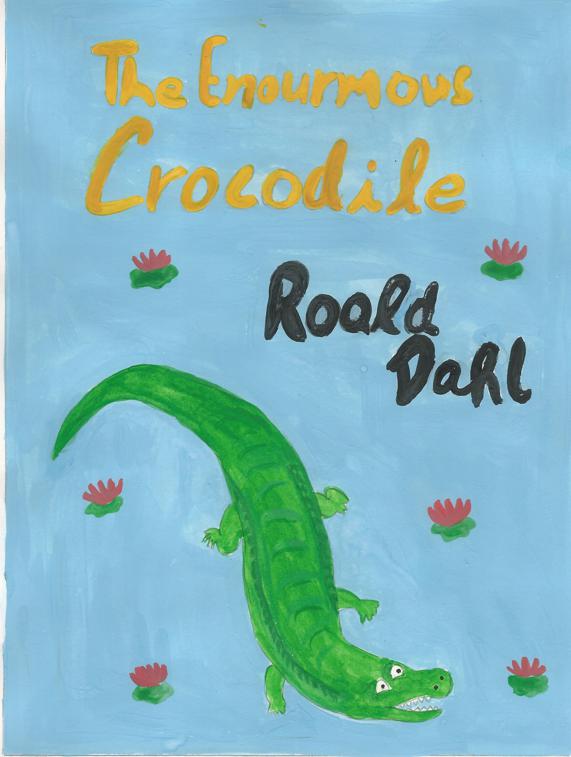 The Enourmous
Crocodile
Roald
Dahl